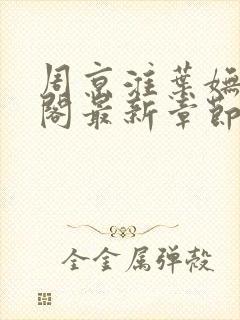 周京淮葉嫵
閣最新章節
全金属弹殼